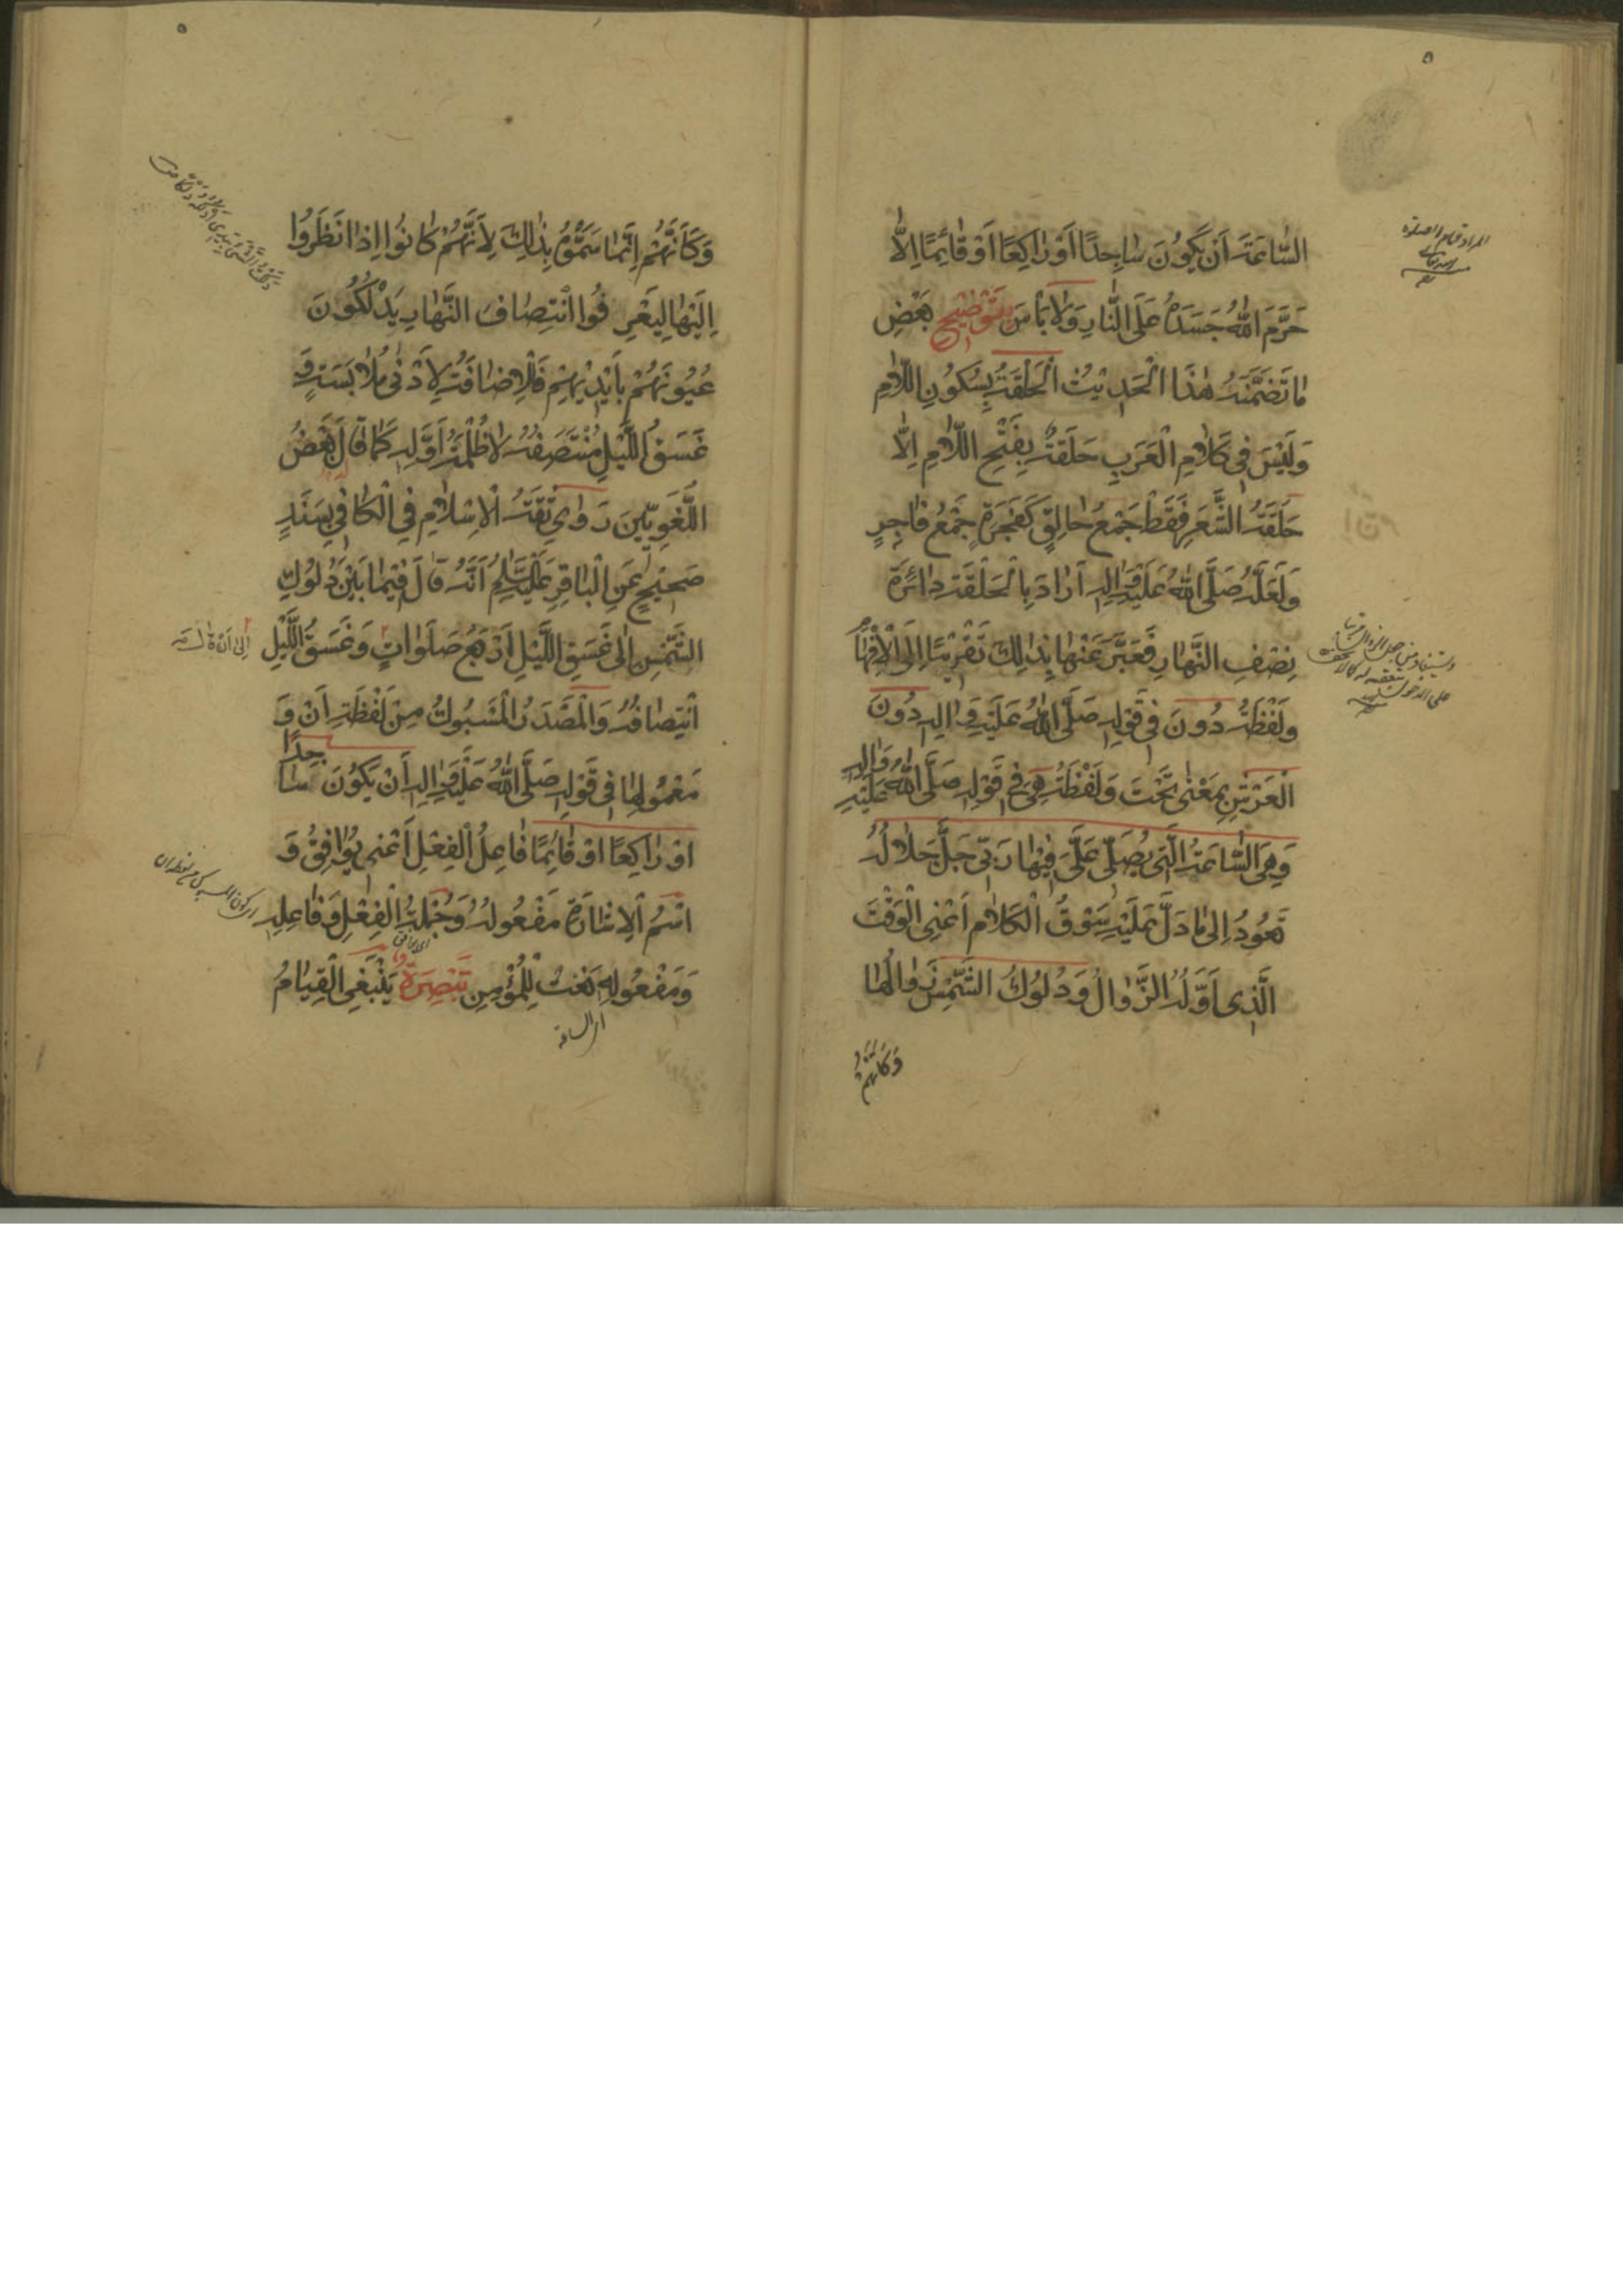 السَّاعَةَ أَنْ يَكُونَ سَاجِدًا أَوْ رَاكِعًا أَوْ قَائِمًا إِلَّا
حَرَّمَ اللهُ جَسَدَهُ عَلَى النَّارِ وَلَا بَأْسَ بِتَوْضِيحِ بَعْضِ
مَا تَضَمَّنَهُ هٰذَا الْحَدِيثُ الْحَلْقَةُ بِسُكُونِ اللَّامِ
وَلَيْسَ فِي كَلَامِ الْعَرَبِ حَلَقَةٌ بِفَتْحِ اللَّامِ إِلَّا
حَلَقَةُ الشَّعَرِ فَقَطْ جَمْعُ حَالِقٍ كَفَجَرَةٍ جَمْعُ فَاجِرٍ
وَلَعَلَّهُ صَلَّى اللهُ عَلَيْهِ وَآلِهِ أَرَادَ بِالْحَلْقَةِ دَائِرَةَ
نِصْفِ النَّهَارِ فَعَبَّرَ عَنْهَا بِذَالِكَ تَقْرِيبًا إِلَى الْأَفْهَامِ
وَلَفْظَةُ دُونَ فِي قَوْلِهِ صَلَّى اللهُ عَلَيْهِ وَآلِهِ دُونَ
الْعَرْشِ بِمَعْنَى تَحْتَ وَلَفْظَةُ هِيَ فِي قَوْلِهِ صَلَّى اللهُ عَلَيْهِ وَآلِهِ
وَهِيَ السَّاعَةُ الَّتِي يُصَلِّي عَلَيَّ فِيهَا رَبِّي جَلَّ جَلَالُهُ
تَعُودُ إِلَى مَا دَلَّ عَلَيْهِ سَوْقُ الْكَلَامِ أَعْنِي الْوَقْتَ
الَّذِي أَوَّلُهُ الزَّوَالُ وَدُلُوكُ الشَّمْسِ زَوَالُهَا
وَكَأَنَّهُمْ
وَكَأَنَّهُمْ إِنَّمَا سَمَّوْهُ بِذَالِكَ لِأَنَّهُمْ كَانُوا إِذَا نَظَرُوا
إِلَيْهَا لِيَعْرِفُوا انْتِصَافَ النَّهَارِ يَدْلُكُونَ
عُيُونَهُمْ بِأَيْدِيهِمْ فَالْإِضَافَةُ لِأَدْنَى مُلَابَسَةٍ وَ
غَسَقُ اللَّيْلِ مُنْتَصَفُهُ لَا ظُلْمَةُ أَوَّلِهِ كَمَا قَالَ بَعْضُ
اللُّغَوِيِّينَ رَوَى ثِقَةُ الْإِسْلَامِ فِي الْكَافِي بِسَنَدٍ
صَحِيحٍ عَنِ الْبَاقِرِ عَلَيْهِ السَّلَامُ أَنَّهُ قَالَ فِيمَا بَيْنَ دُلُوكِ
الشَّمْسِ إِلَى غَسَقِ اللَّيْلِ أَرْبَعُ صَلَوَاتٍ وَغَسَقُ اللَّيْلِ
انْتِصَافُهُ وَالْمَصْدَرُ الْمَسْبُوكُ مِنْ لَفْظَةِ أَنْ وَ
مَعْمُولِهَا فِي قَوْلِهِ صَلَّى اللهُ عَلَيْهِ وَآلِهِ أَنْ يَكُونَ سَاجِدًا
أَوْ رَاكِعًا أَوْ قَائِمًا فَاعِلُ الْفِعْلِ أَعْنِي يُوَافِقُ وَ
اسْمُ الْإِشَارَةِ مَفْعُولُهُ وَجُمْلَةُ الْفِعْلِ وَفَاعِلِهِ
وَمَفْعُولِهِ نَعْتٌ لِلْمُؤْمِنِ تَبْصِرَةٌ يَنْبَغِي الْقِيَامُ